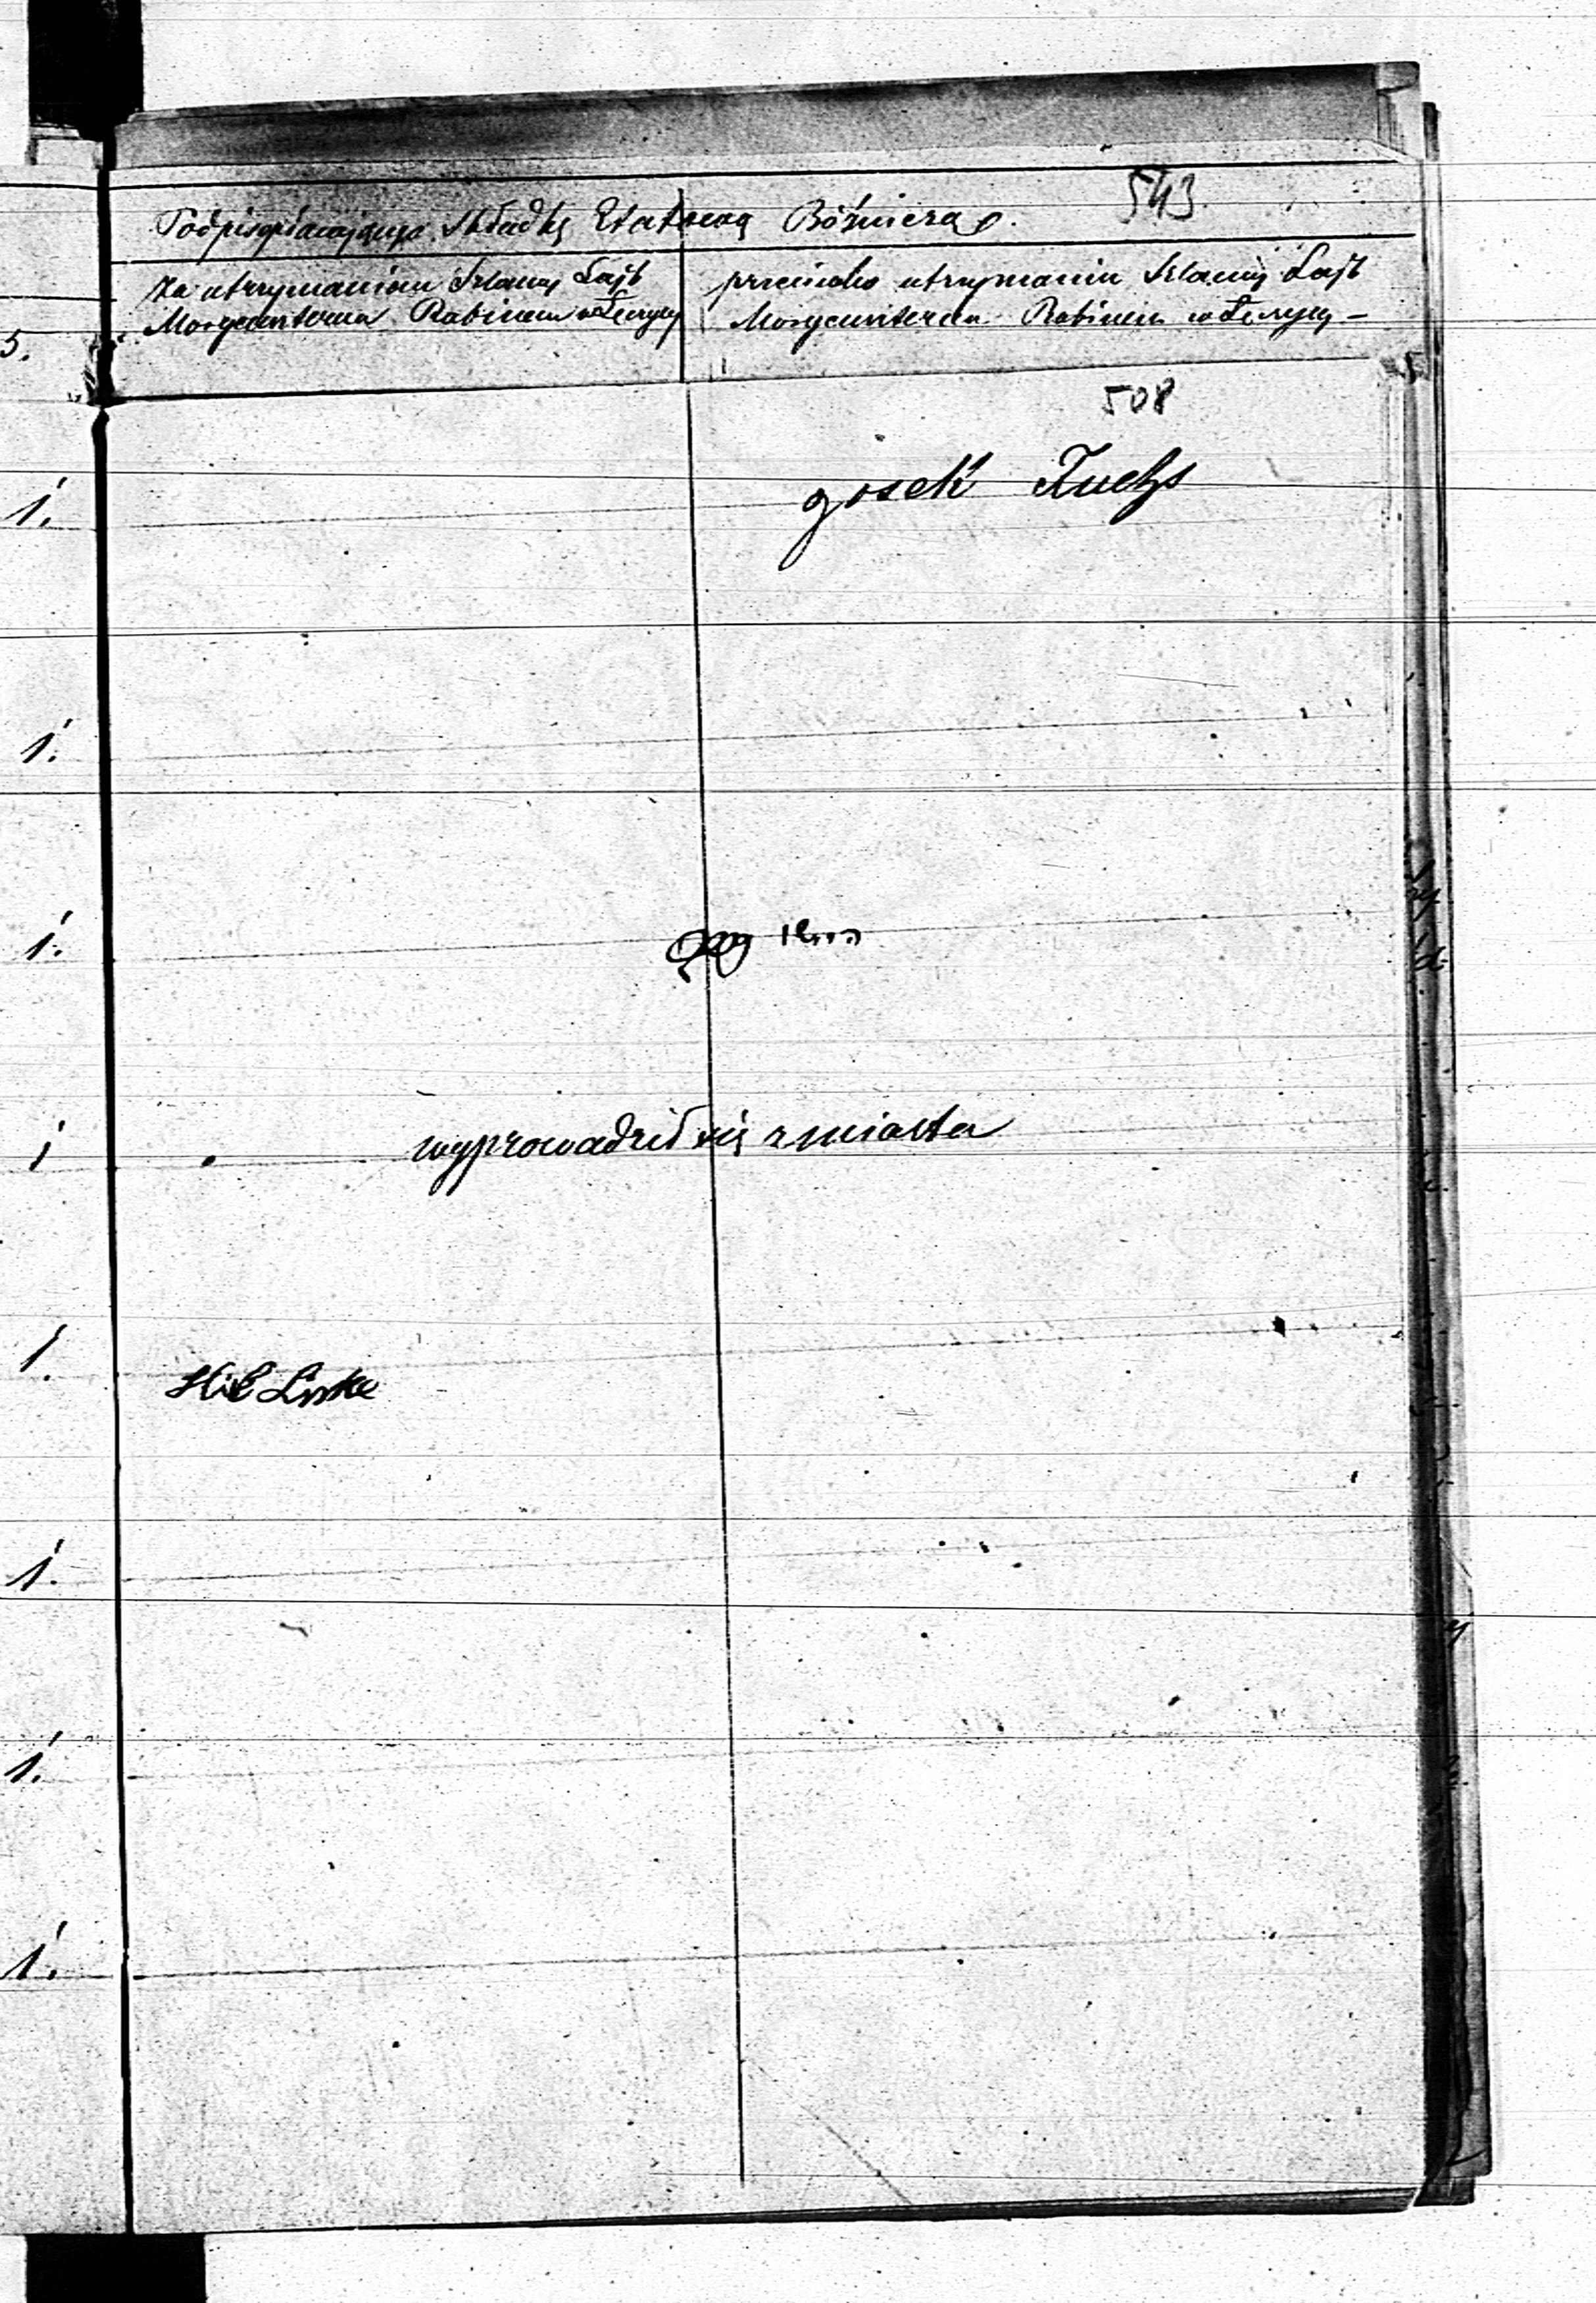 543.
Podpis opłacającego Składkę Etatową Bóźniczą.
za utrzymaniem Szlamy Lajb
Morgenszterna Rabinem w Łęczycy
przeciwko utrzymaniu Szlamy Lajb
Morgenszterna Rabinem w Łęczycy –
5.
508
1.
Josek Fuchs
1.
1.
1
wyprowadził się z miasta
1.
Hil Liske
1.
1.
1.